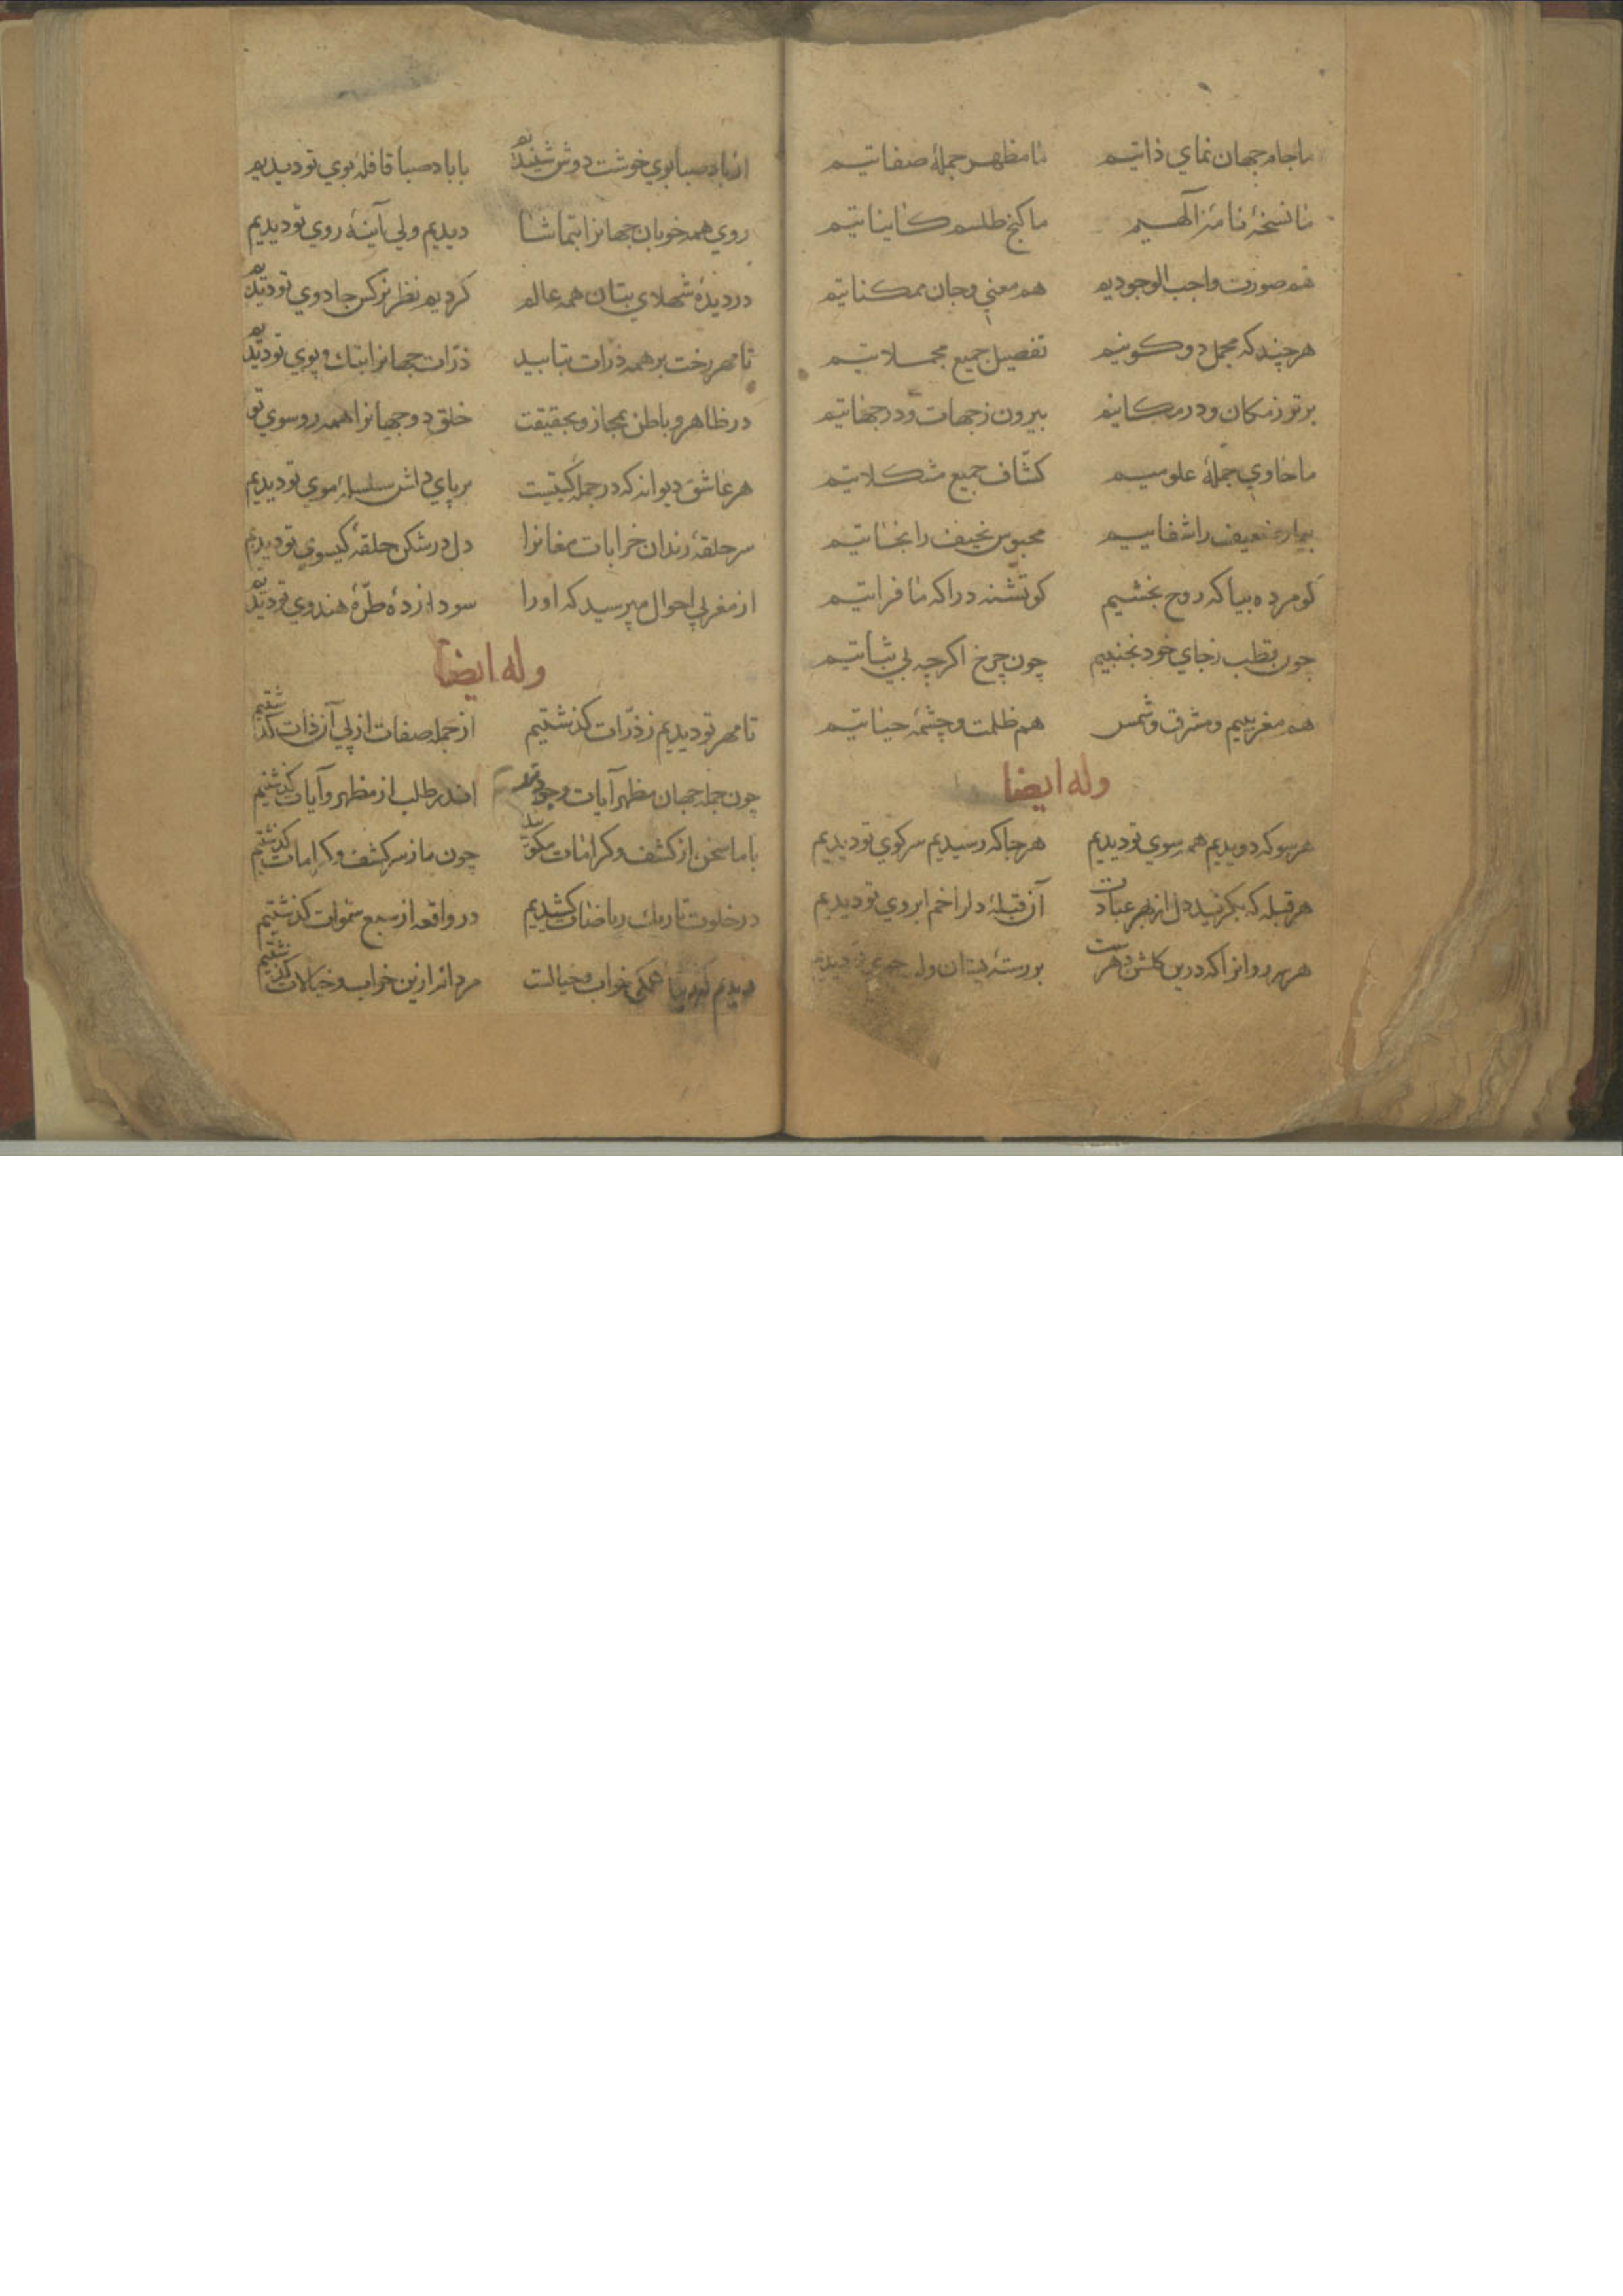 ما جام جهان نماي ذاتيم ما مظهر جملهٔ صفاتيم
ما نسخهٔ نامهٔ الهيم ما كنج طلسم كايناتيم
هم صورت واجب الوجوديم هم معني وجان ممكناتيم
هرچند كه مجمل دو كونيم تفصيل جميع مجملاتيم
برتر ز مكان ودر مكانيم بيرون ز جهات ودر جهاتيم
ما حاوي جملهٔ علوميم كشّاف جميع مشكلاتيم
بيمار ضعيف را شفاييم محبوس نحيف را نجاتيم
كو مرده بيا كه روح بخشيم كو تشنه درا كه ما فراتيم
چون قطب ز جاي خود نجنبيم چون چرخ اكرچه بي ثباتيم
هم مغربييم ومشرق وشمس هم ظلمت وچشمهٔ حياتيم
وله ايضا
هرسو كه دويديم همه سوي تو ديديم هرجا كه رسيديم سر كوي تو ديديم
هر قبله كه بكزيد دل از بهر عبادت آن قبلهٔ دل را خم ابروي تو ديديم
هر سرو روانرا كه درين كلشن دهرست بر رستهٔ بستان ولب جوي تو ديديم
از باد صبا بوي خوشت دوش شنيديم با باد صبا قافلهٔ بوي تو ديديم
روي همه خوبان جهانرا بتماشا ديديم ولي آينهٔ روي تو ديديم
در ديدهٔ شهلاي بتان همه عالم كرديم نظر نركس جادوي تو ديديم
تا مهر رخت بر همه ذرات بتابيد ذرّات جهانرا بتك وپوي تو ديديم
در ظاهر و باطن بمجاز و بحقيقت خلق دو جهانرا همه رو سوي تو
هر عاشق ديوانه كه در جملهٔ كيتيست بر پاي دلش سلسلهٔ موي تو ديديم
سر حلقهٔ رندان خرابات مغانرا دل در شكن حلقهٔ كيسوي تو ديديم
از مغربي احوال مپرسيد كه اورا سودا زدهٔ طرّهٔ هندوي تو ديديم
وله ايضا
تا مهر تو ديديم ز ذرّات كذشتيم از جمله صفات از پي آن ذات كذشتيم
چون جمله جهان مظهر آيات وجودند اندر طلب از مظهر و آيات كذشتيم
با ما سخن از كشف وكرامات مكوييد چون ما ز سر كشف وكرامات كذشتيم
در خلوت تاريك رياضات كشيديم در واقعه از سبع سموات كذشتيم
ديديم كه اينها همكي خواب و خيالست مردانه ازين خواب و خيالات كذشتيم